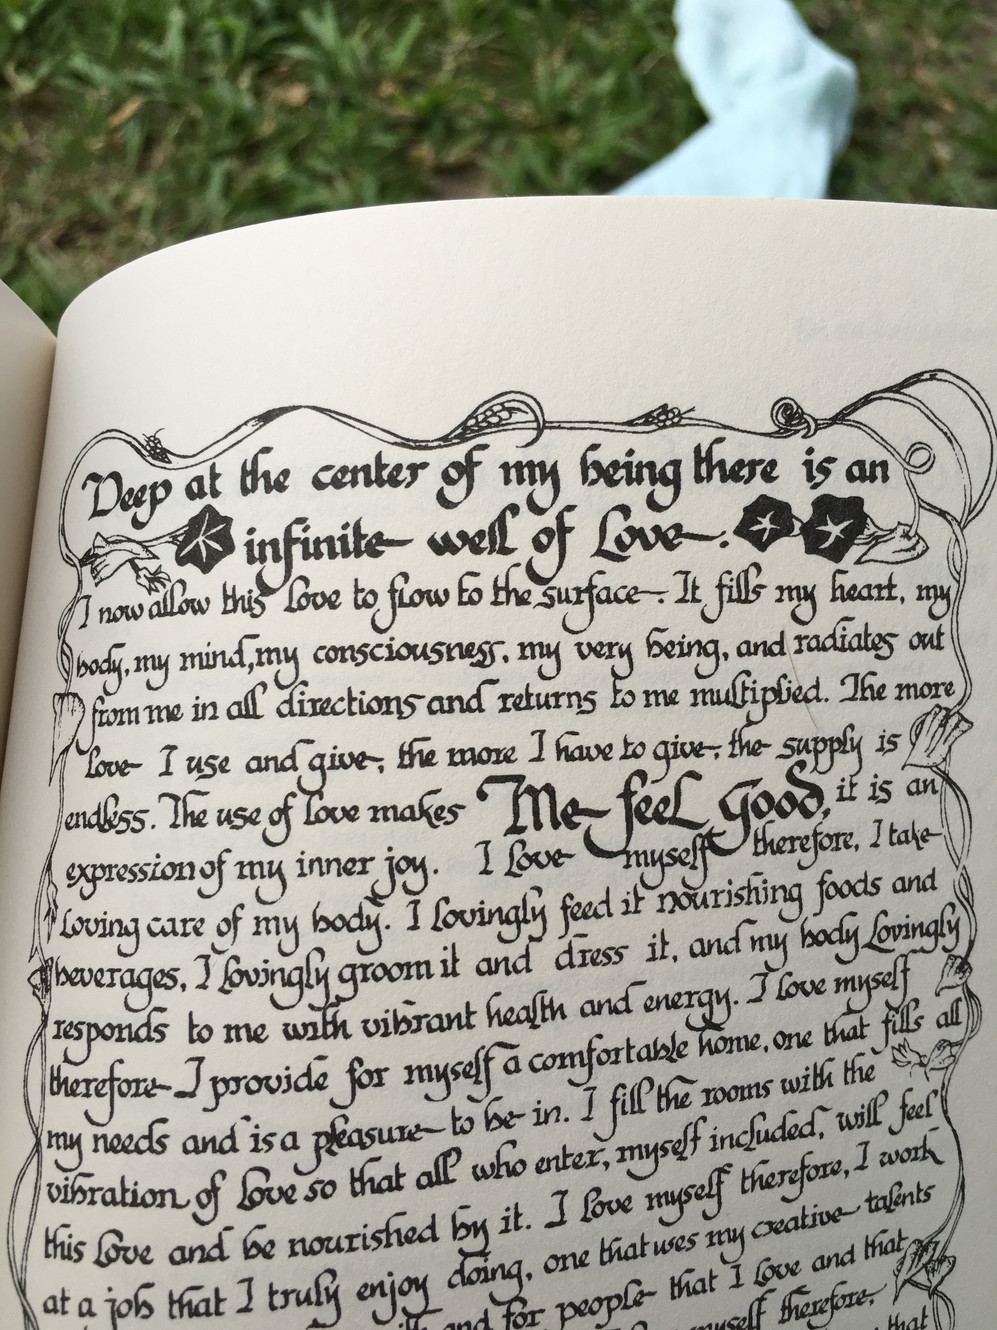 Deep at the center of my being there is an
infinite well of Love.
I now allow this Love to flow to the surface. It fills my heart, my
body, my mind, my consciousness, my very being, and radiates out
from me in all directions and returns to me multiplied. The more
love I use and give, the more I have to give, the supply is
endless. The use of Love makes Me feel Good, it is an
expression of my inner joy. I Love myself therefore, I take
Loving care of my body. I Lovingly feed it nourishing foods and
beverages, I Lovingly groom it and dress it, and my body Lovingly
responds to me with vibrant health and energy. I Love myself
therefore I provide for myself a comfortable home, one that fills all
my needs and is a pleasure to be in. I fill the rooms with the
vibration of Love so that all who enter, myself included, will feel
this Love and be nourished by it. I Love myself therefore, I work
at a job that I truly enjoy doing, one that uses my creative talents
and for people that I Love and that
myself therefore,
that